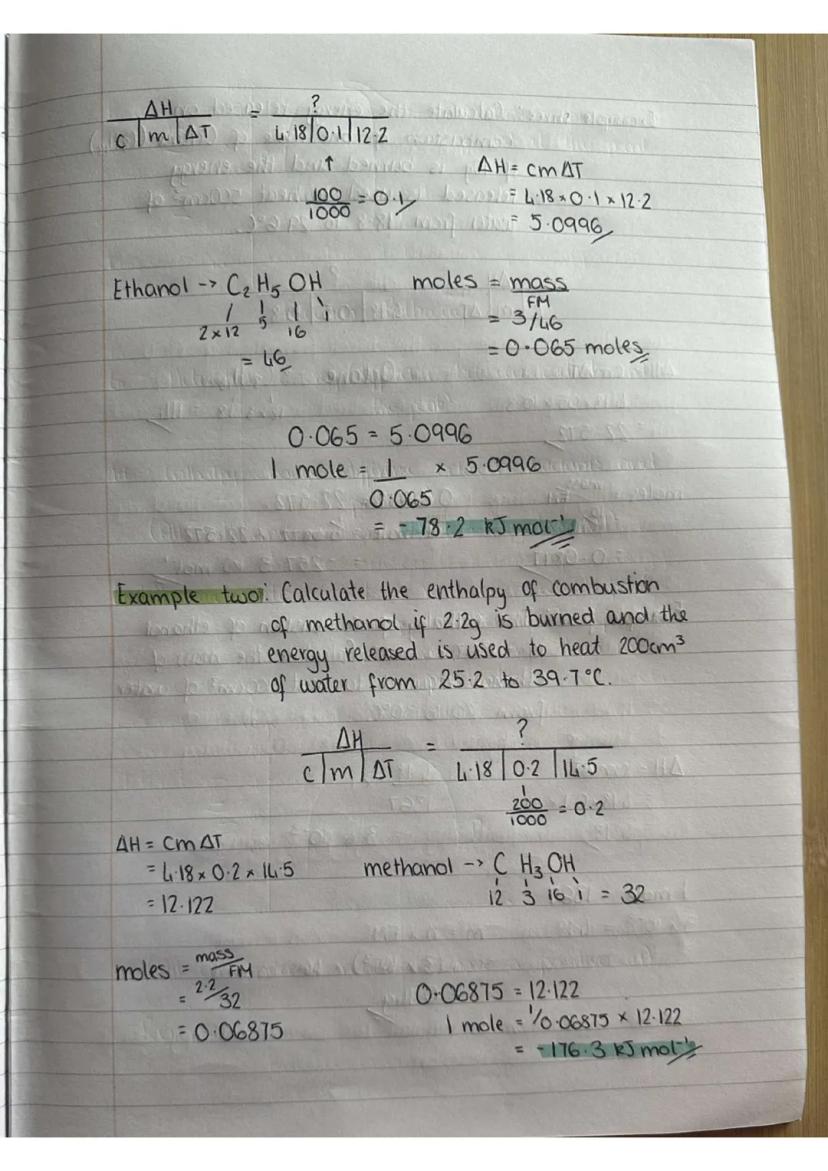 ΔH = ?
c | m | ΔT 4.18 | 0.1 | 12.2
↑
100/1000 = 0.1
ΔH = cmΔT
= 4.18 × 0.1 × 12.2
= 5.0996
Ethanol → C₂ H₅ OH
2×12 5 16 1
= 46
moles = mass/FM
= 3/46
= 0.065 moles
0.065 = 5.0996
1 mole = 1/0.065 × 5.0996
= -78.2 kJ mol⁻¹
Example two: Calculate the enthalpy of combustion
of methanol if 2.2g is burned and the
energy released is used to heat 200cm³
of water from 25.2 to 39.7°C.
ΔH = ?
c | m | ΔT 4.18 | 0.2 | 14.5
200/1000 = 0.2
ΔH = cmΔT
= 4.18 × 0.2 × 14.5
= 12.122
methanol → C H₃ OH
12 3 16 1 = 32
moles = mass/FM
= 2.2/32
= 0.06875
0.06875 = 12.122
1 mole = 1/0.06875 × 12.122
= -176.3 kJ mol⁻¹